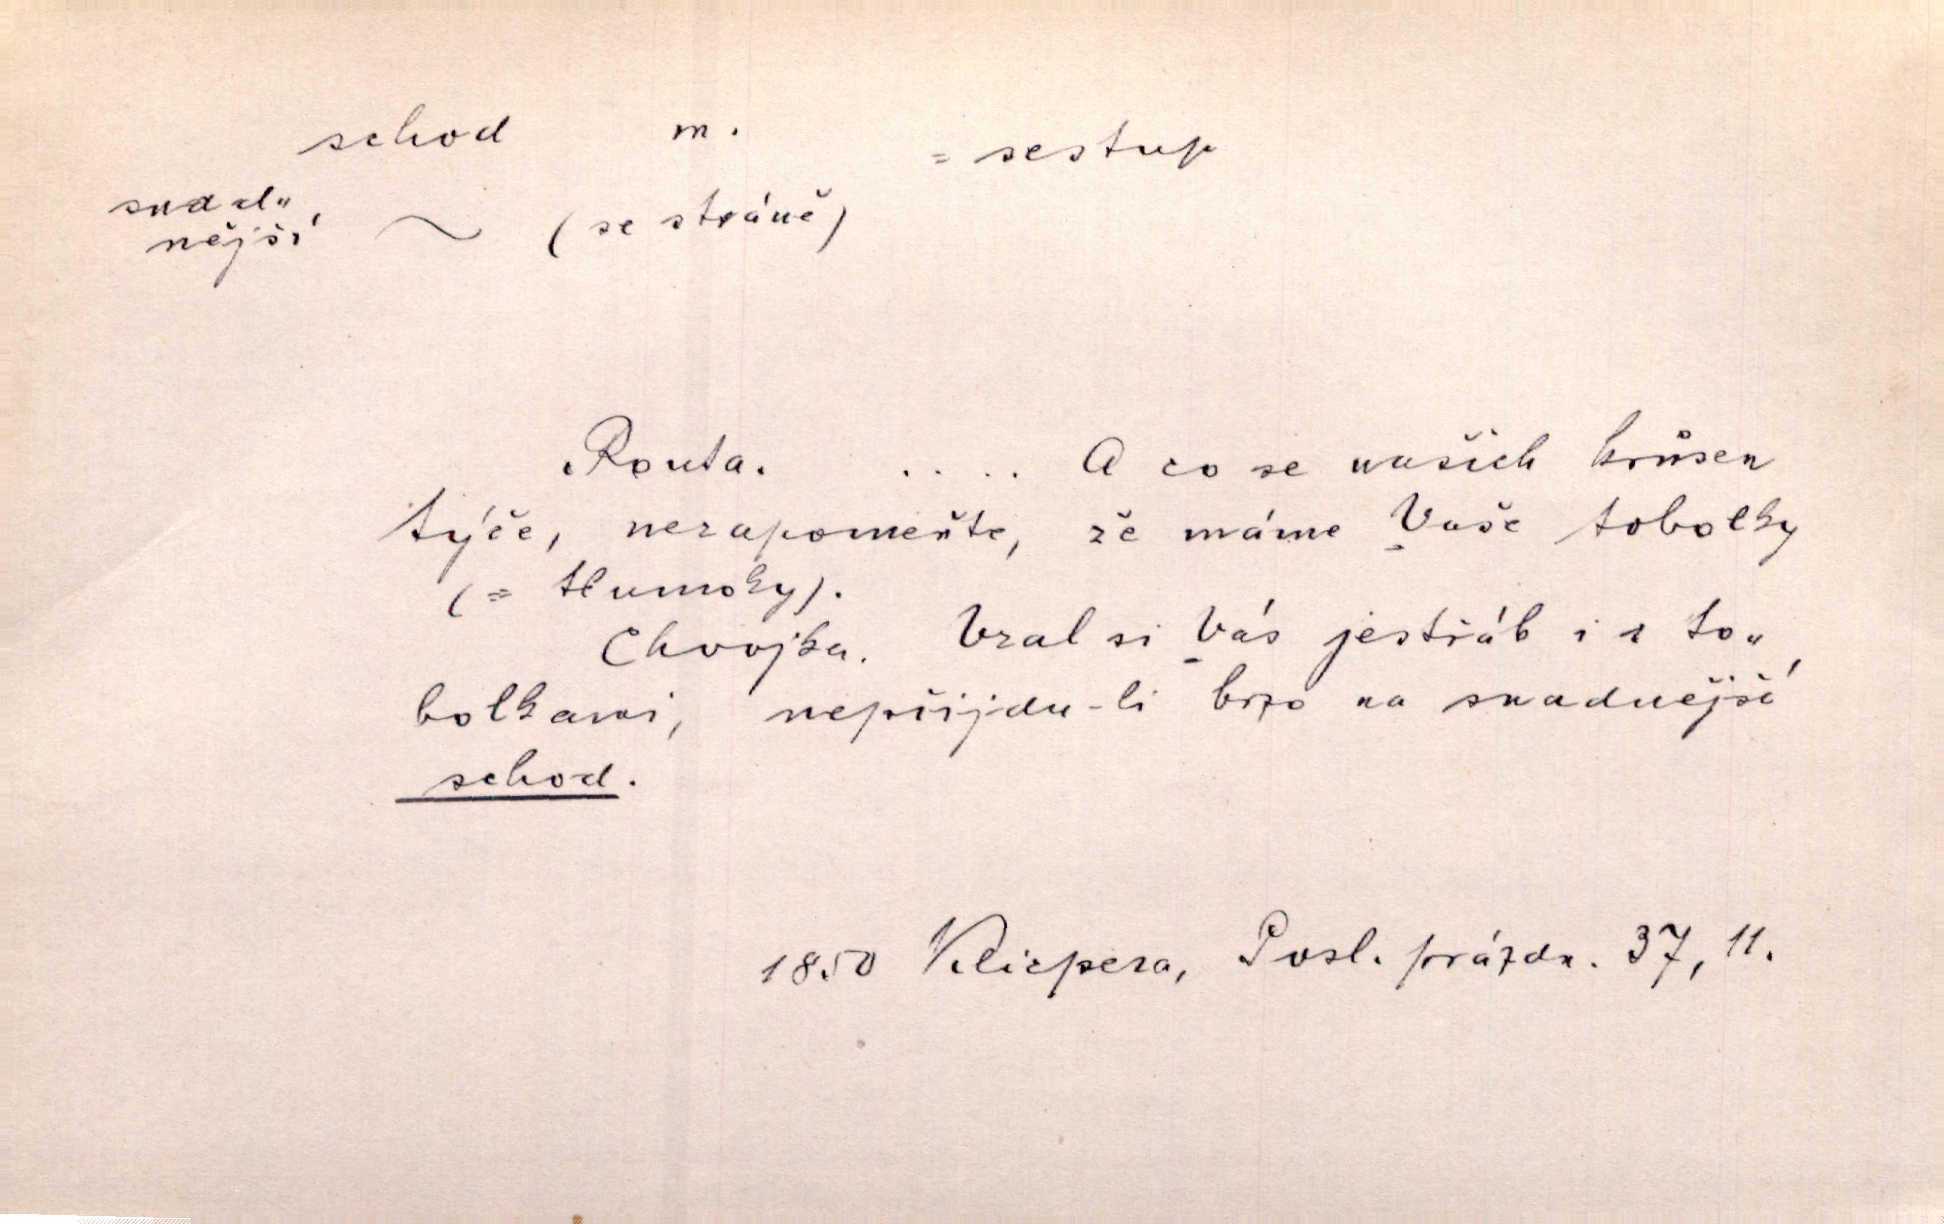 schod m. = sestup
snad„
nější ~ (se stráně)
Routa. ..... A co se našich krůsen
týče, nezapomeňte, že máme Vaše tobolky
(= tlumoky).
Chvojka. Vzal si Vás jestřáb i s to„
bolkami, nepřijdu-li brzo na snadnější
schod.
1850 Klicpera, Posl. prázdn. 37, 11.